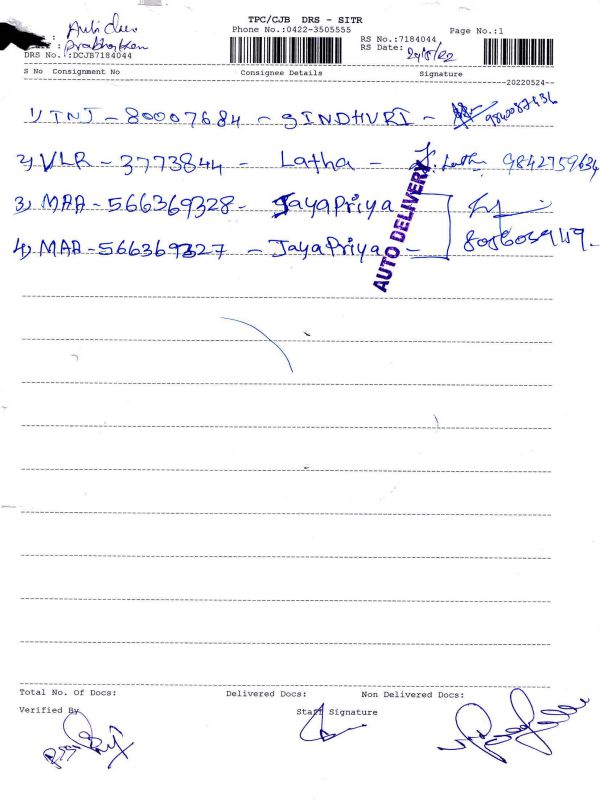 TPC/CJB DRS - SITR
Phone No.:0422-3505555
Page No.:1
RS No.:7184044
RS Date:
DRS No.:DCJB7184044
S No Consignment No Consignee Details Signature
20220524
1) TNJ - 80007684 - SINDHURI -
2) VLR - 3773844 - Latha - Latha 9842759634
3) MAA - 566369328 - JayaPriya
4) MAA - 566369327 - JayaPriya -
AUTO DELIVERY
Total No. Of Docs: Delivered Docs: Non Delivered Docs:
Verified By Staff Signature